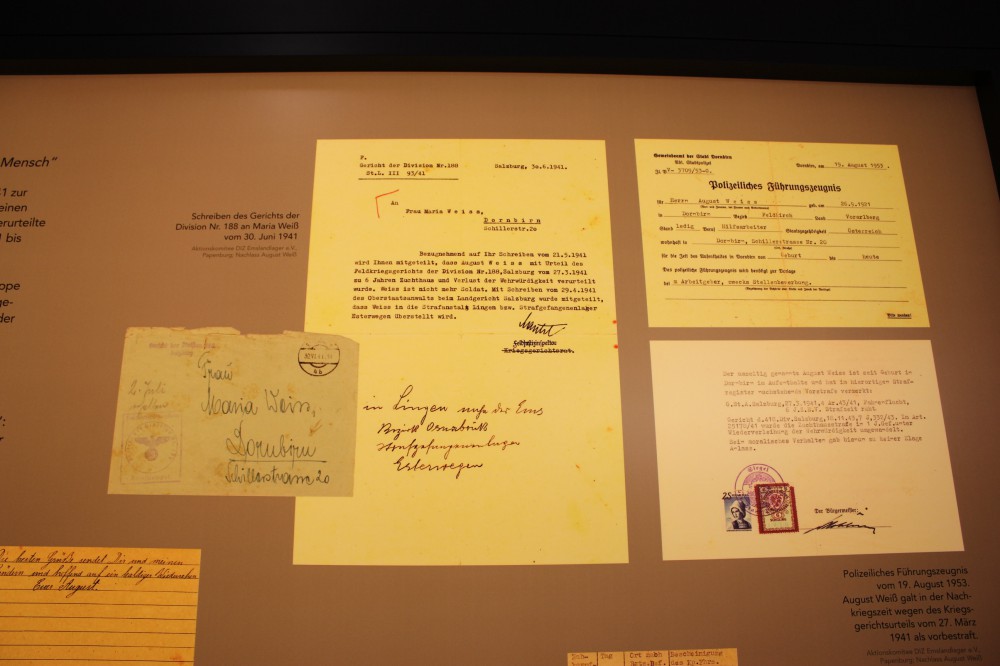 Mensch"
1 zur
einen
erurteilte
1 bis
ppe
ge-
der
Schreiben des Gerichts der
Division Nr. 188 an Maria Weiß
vom 30. Juni 1941
Aktionskomitee DIZ Emslandlager e.V.,
Papenburg; Nachlass August Weiß
Gericht der Division Nr.188
St.L. III 93/41
Salzburg, 30.6.1941.
An
Frau Maria Weiss,
Dornbirn
Schillerstr.20
Bezugnehmend auf Ihr Schreiben vom 21.5.1941
wird Ihnen mitgeteilt, dass August Weiss mit Urteil des
Feldkriegsgerichts der Division Nr.188, Salzburg vom 27.3.1941
zu 6 Jahren Zuchthaus und Verlust der Wehrwürdigkeit verurteilt
wurde. Weiss ist nicht mehr Soldat. Mit Schreiben vom 29.4.1941
des Oberstaatsanwalts beim Landgericht Salzburg wurde mitgeteilt,
dass Weiss in die Strafanstalt Lingen bzw. Strafgefangenenlager
Esterwegen überstellt wird.
Kriegsgerichtsrat.
in Lingen nahe der Ems
Bezirk Osnabrück
Strafgefangenenlager
Esterwegen
Frau
Maria Weiss,
Dornbirn
Schillerstrasse 20
Gemeindeamt der Stadt Dornbirn
Abt. Stadtpolizei
Dornbirn, am 19. August 1953.
Polizeiliches Führungszeugnis
für Herrn August Weiss
in Dornbirn Bezirk Feldkirch Land Vorarlberg
Stand ledig Beruf Hilfsarbeiter Staatszugehörigkeit Österreich
wohnhaft in Dornbirn, Schillerstrasse Nr. 20
für die Zeit des Aufenthaltes in Dornbirn von Geburt bis heute
Das polizeiliche Führungszeugnis wird benötigt zur Vorlage
bei Arbeitgeber, zwecks Stellenbewerbung.
Bitte wenden!
Der umseitig genannte August Weiss ist seit Geburt in
Dornbirn in Aufenthalte und hat in hiesiger Straf-
register nachstehende Vorstrafe vermerkt:
Siegel
Der Bürgermeister:
die besten Grüße sendet Dir und meinen
Brüdern und hoffend auf ein baldiges Wiedersehen
Euer August.
Polizeiliches Führungszeugnis
vom 19. August 1953.
August Weiß galt in der Nach-
kriegszeit wegen des Kriegs-
gerichtsurteils vom 27. März
1941 als vorbestraft.
Aktionskomitee DIZ Emslandlager e.V.,
Papenburg; Nachlass August Weiß
Tag
Ort nach
Bescheinigung